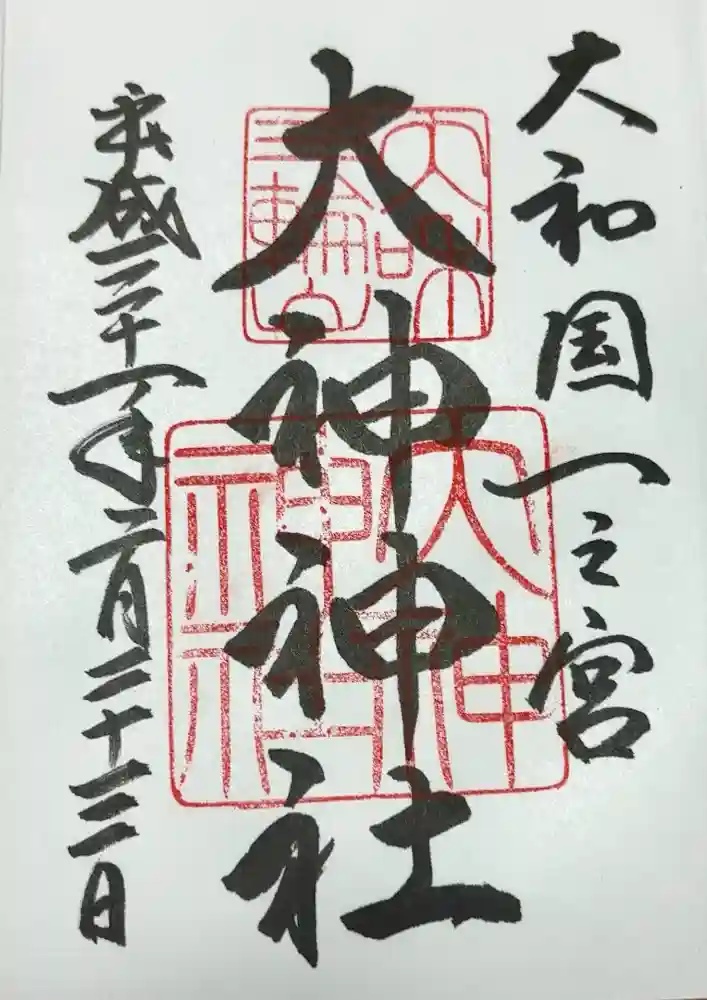 大和国一之宮
大神神社
平成三十一年二月二十三日
大神神社